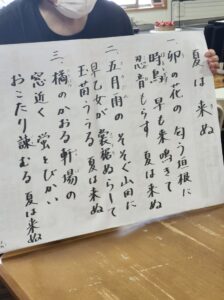 夏は来ぬ
一、卯の花の 匂う垣根に
時鳥 早も来鳴きて
忍音もらす 夏は来ぬ
二、五月雨の そそぐ山田に
早乙女が 裳裾ぬらして
玉苗ううる 夏は来ぬ
三、橘のかおる軒場の
窓近く 蛍とびかい
おこたり諌むる 夏は来ぬ